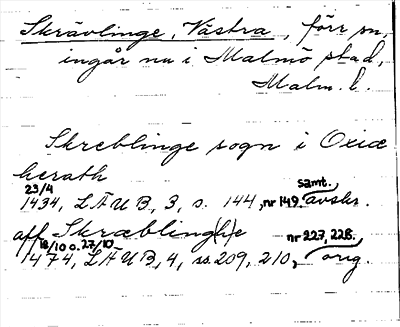 Skrävlinge, Västra, förr sn,
ingår nu i Malmö stad,
Malm. l.
Skreblinge sogn i Oxiæ
herath
23/4 samt.
1434, LÄUB, 3, s. 144, nr 149. avskr.
aff Skræbling(h)e
18/10 o. 27/10 nr 227, 228.
1474, LÄUB, 4, ss. 209, 210, orig.